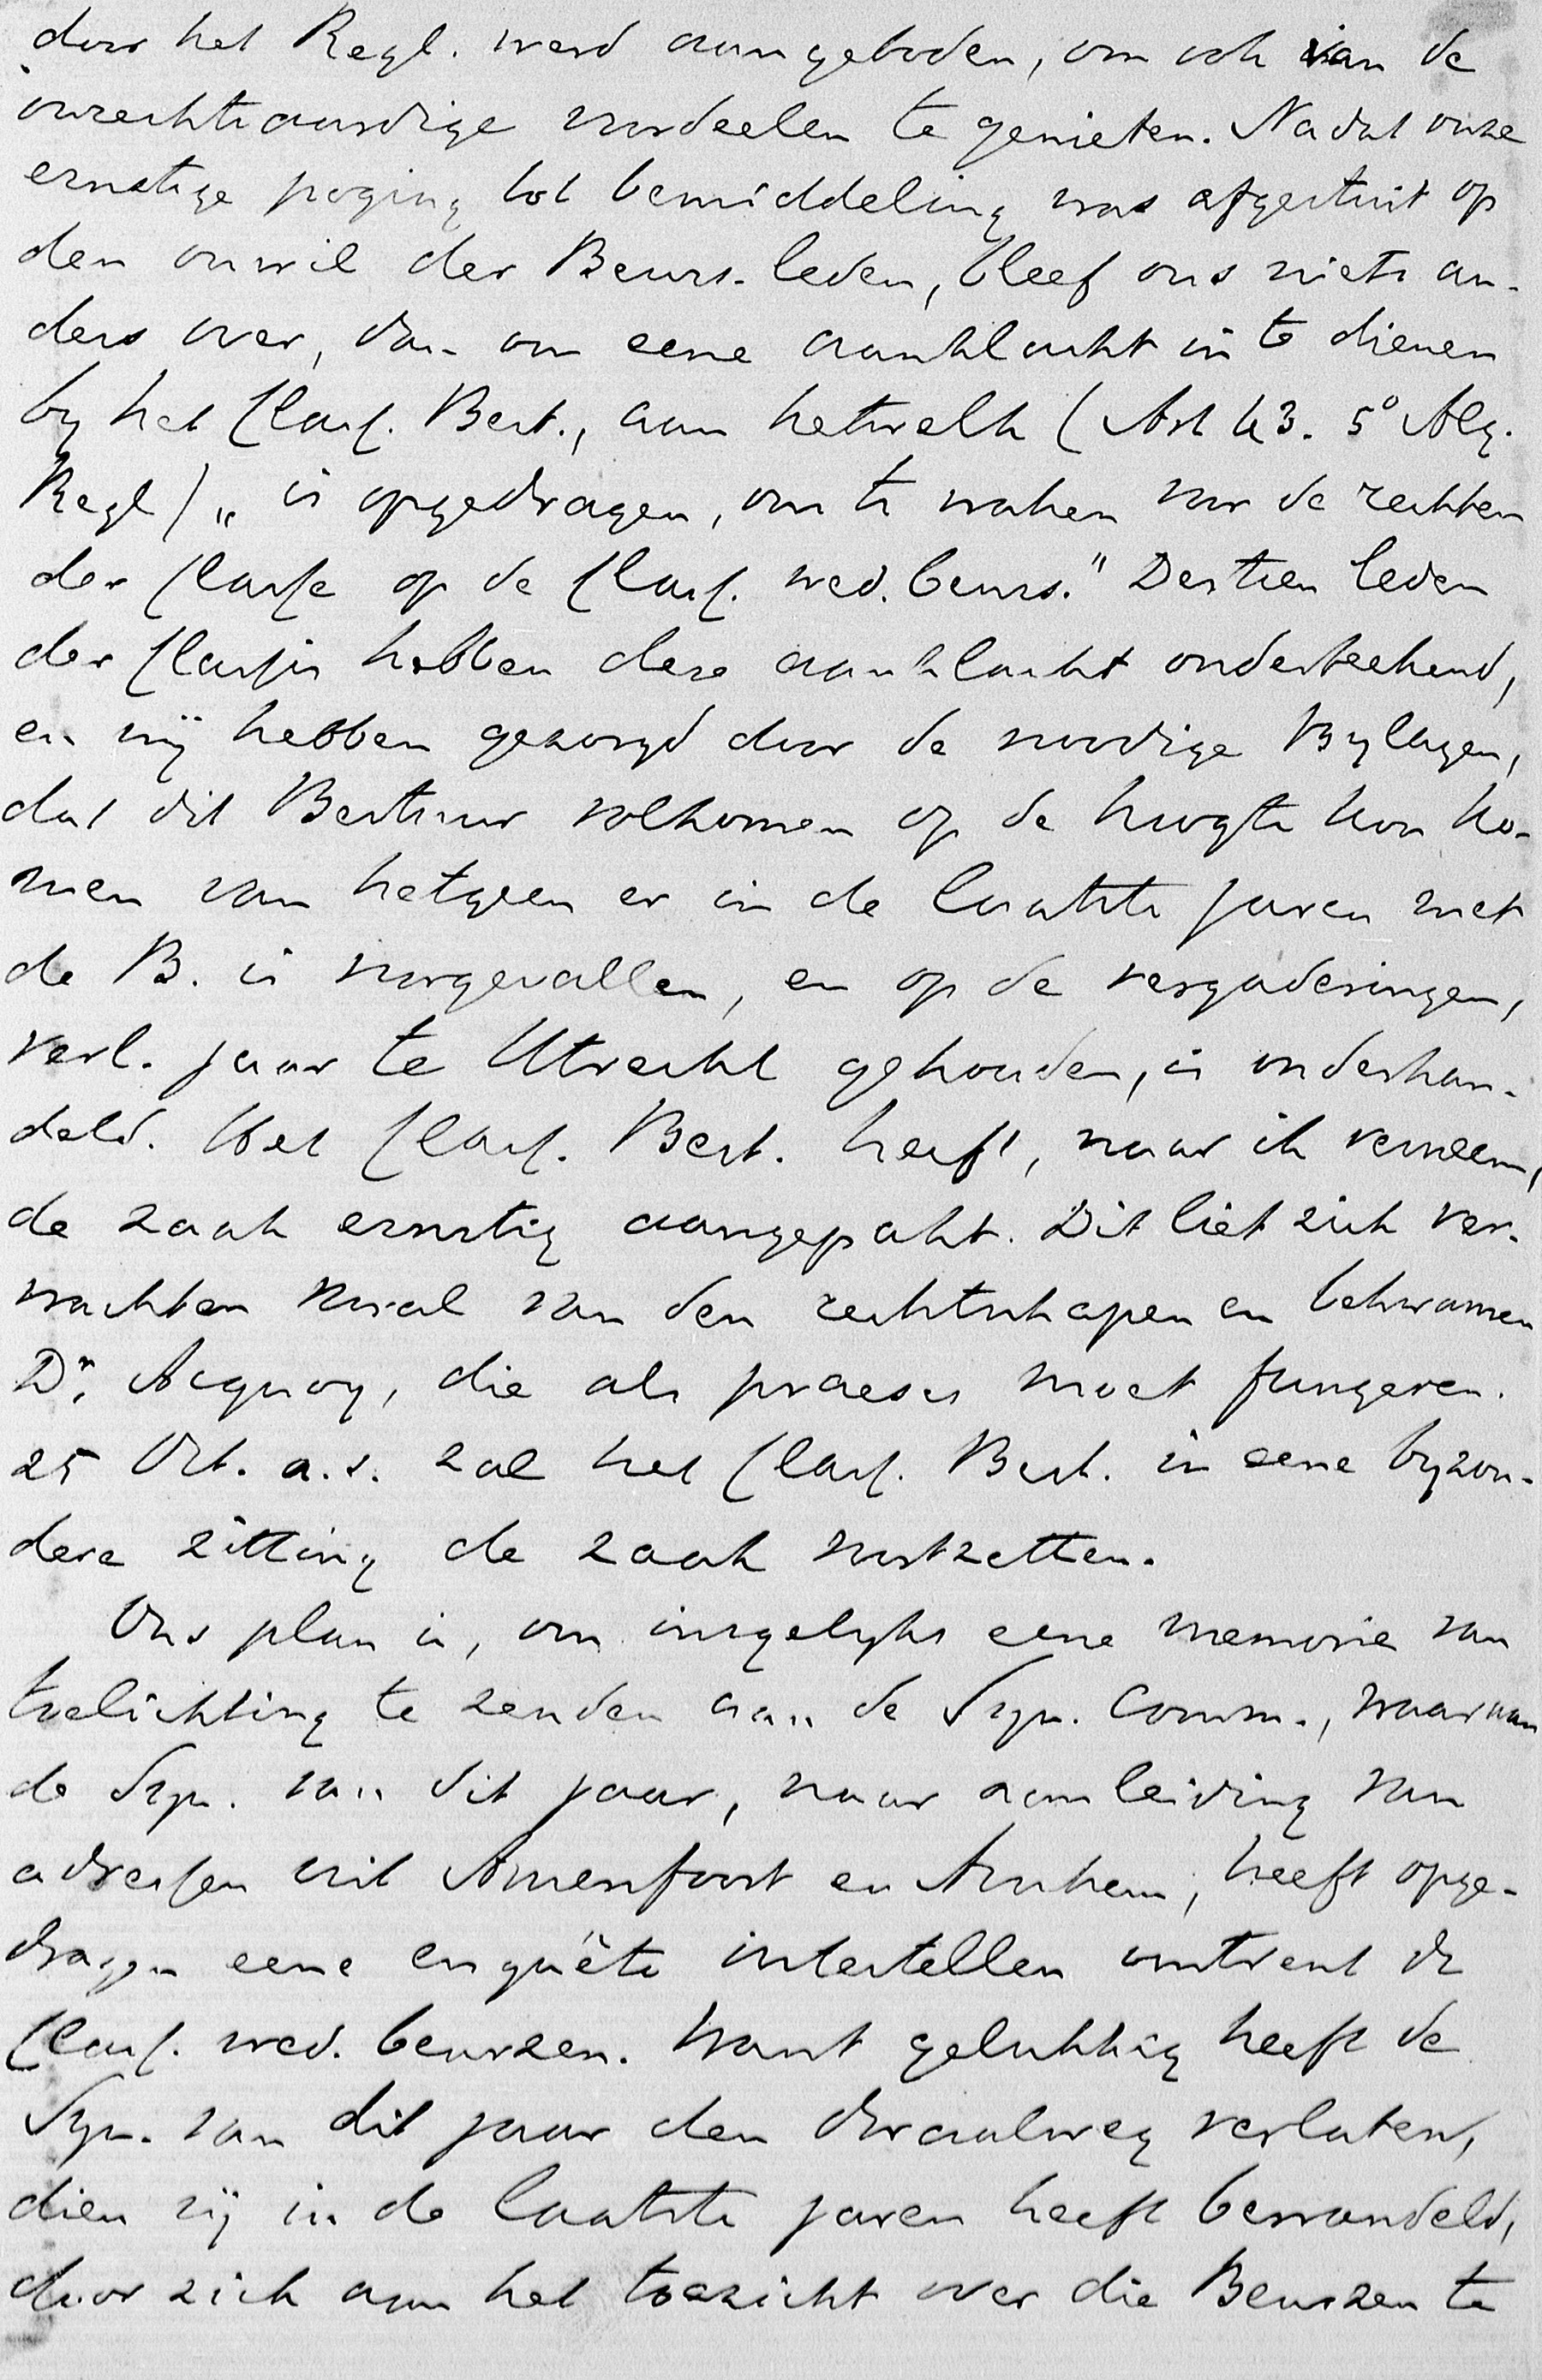 door het Regl. werd aangeboden, om ook van de
onrechtvaardige voordeelen te genieten. Nadat onze
ernstige poging tot bemiddeling was afgestuit op
den onwil der Beurs-leden, bleef ons niets an-
ders over, dan om eene aanklacht in te dienen
by het Class. Best., aan hetwelk (Art 43. 5° Alg.
Regl) „is opgedragen, om te waken voor de rechten
der Classe op de Class. wed. beurs." Dertien leden
der Classis hebben deze aanklacht onderteekend,
en wij hebben gezorgd door de noodige Bylagen,
dat dit Bestuur volkomen op de hoogte kon ko-
men van hetgeen er in de laatste jaren met
de B. is voorgevallen, en op de vergaderingen,
verl. jaar te Utrecht gehouden, is onderhan-
deld. Het Class. Best. heeft, naar ik verneem,
de zaak ernstig aangepakt. Dit liet zich ver-
wachten vooral van den rechtschapen en bekwamen
Dr. Acquoy, die als praeses moet fungeren.
25 Oct. a.s. zal het Class. Best. in eene byzon-
dere zitting de zaak voortzetten.
Ons plan is, om insgelyks eene memorie van
toelichting te zenden aan de Syn. Comm., waaraan
de Syn. van dit jaar, naar aanleiding van
adressen uit Amersfoort en Arnhem, heeft opge-
dragen eene enquête intestellen omtrent de
Class. wed. beurzen. Want gelukkig heeft de
Syn. van dit jaar den dwaalweg verlaten,
dien zij in de laatste jaren heeft bewandeld,
door zich aan het toezicht over die Beurzen te